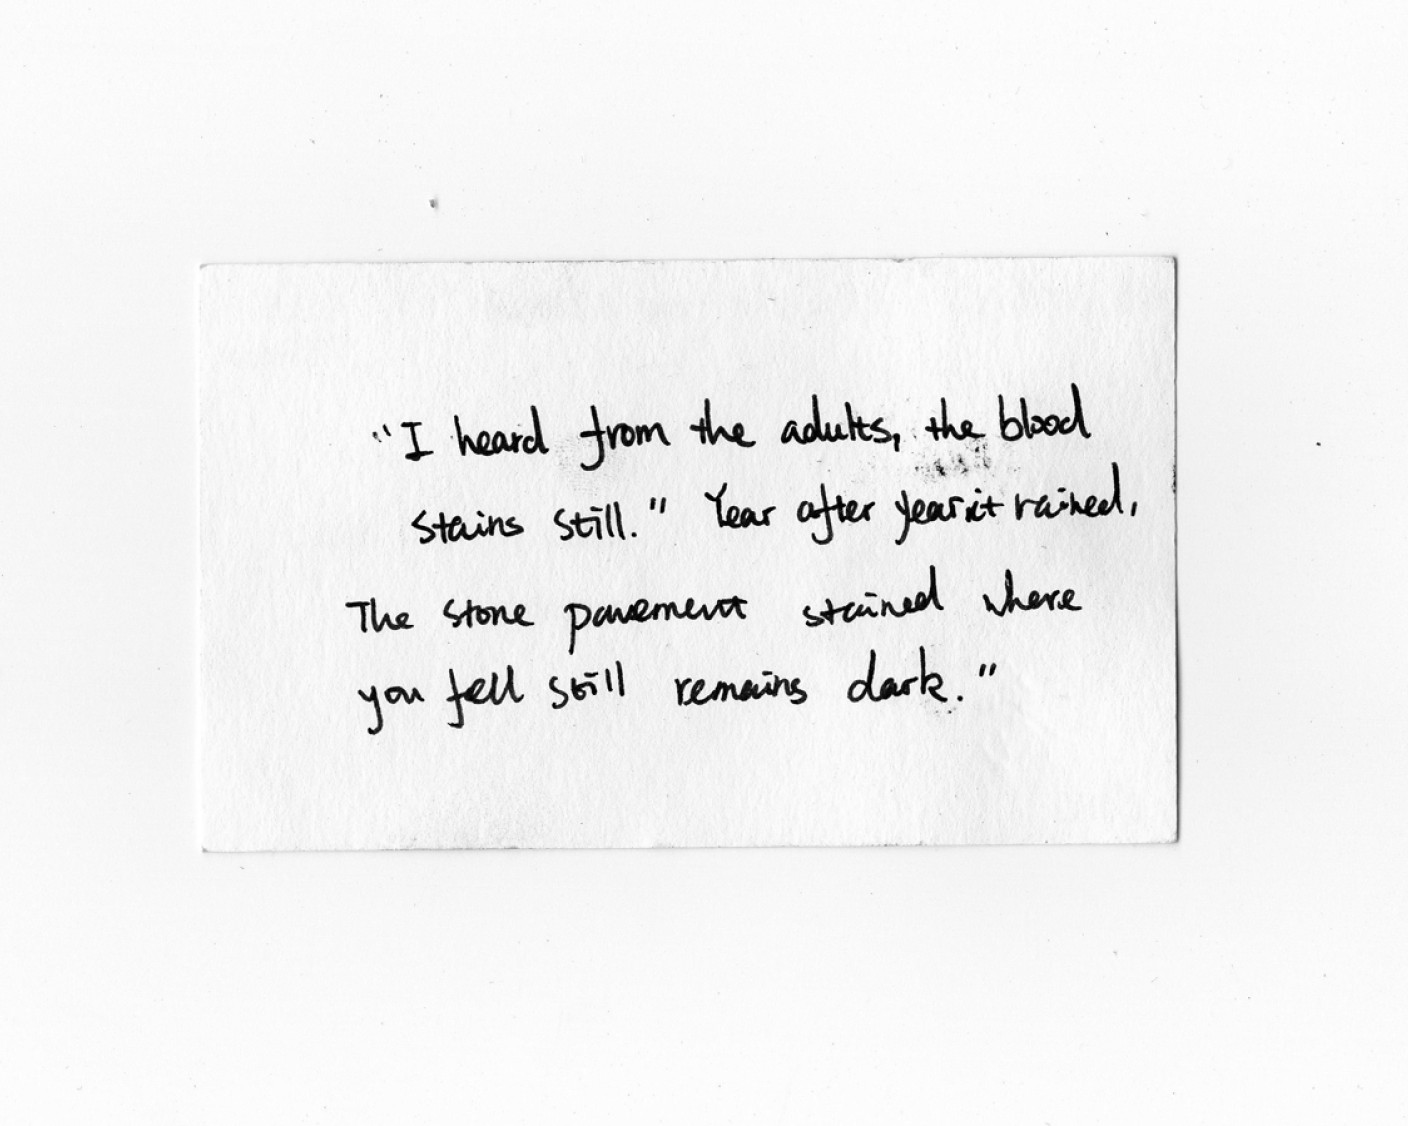 "I heard from the adults, the blood
stains still." Year after year it rained,
The stone pavement stained where
you fell still remains dark."